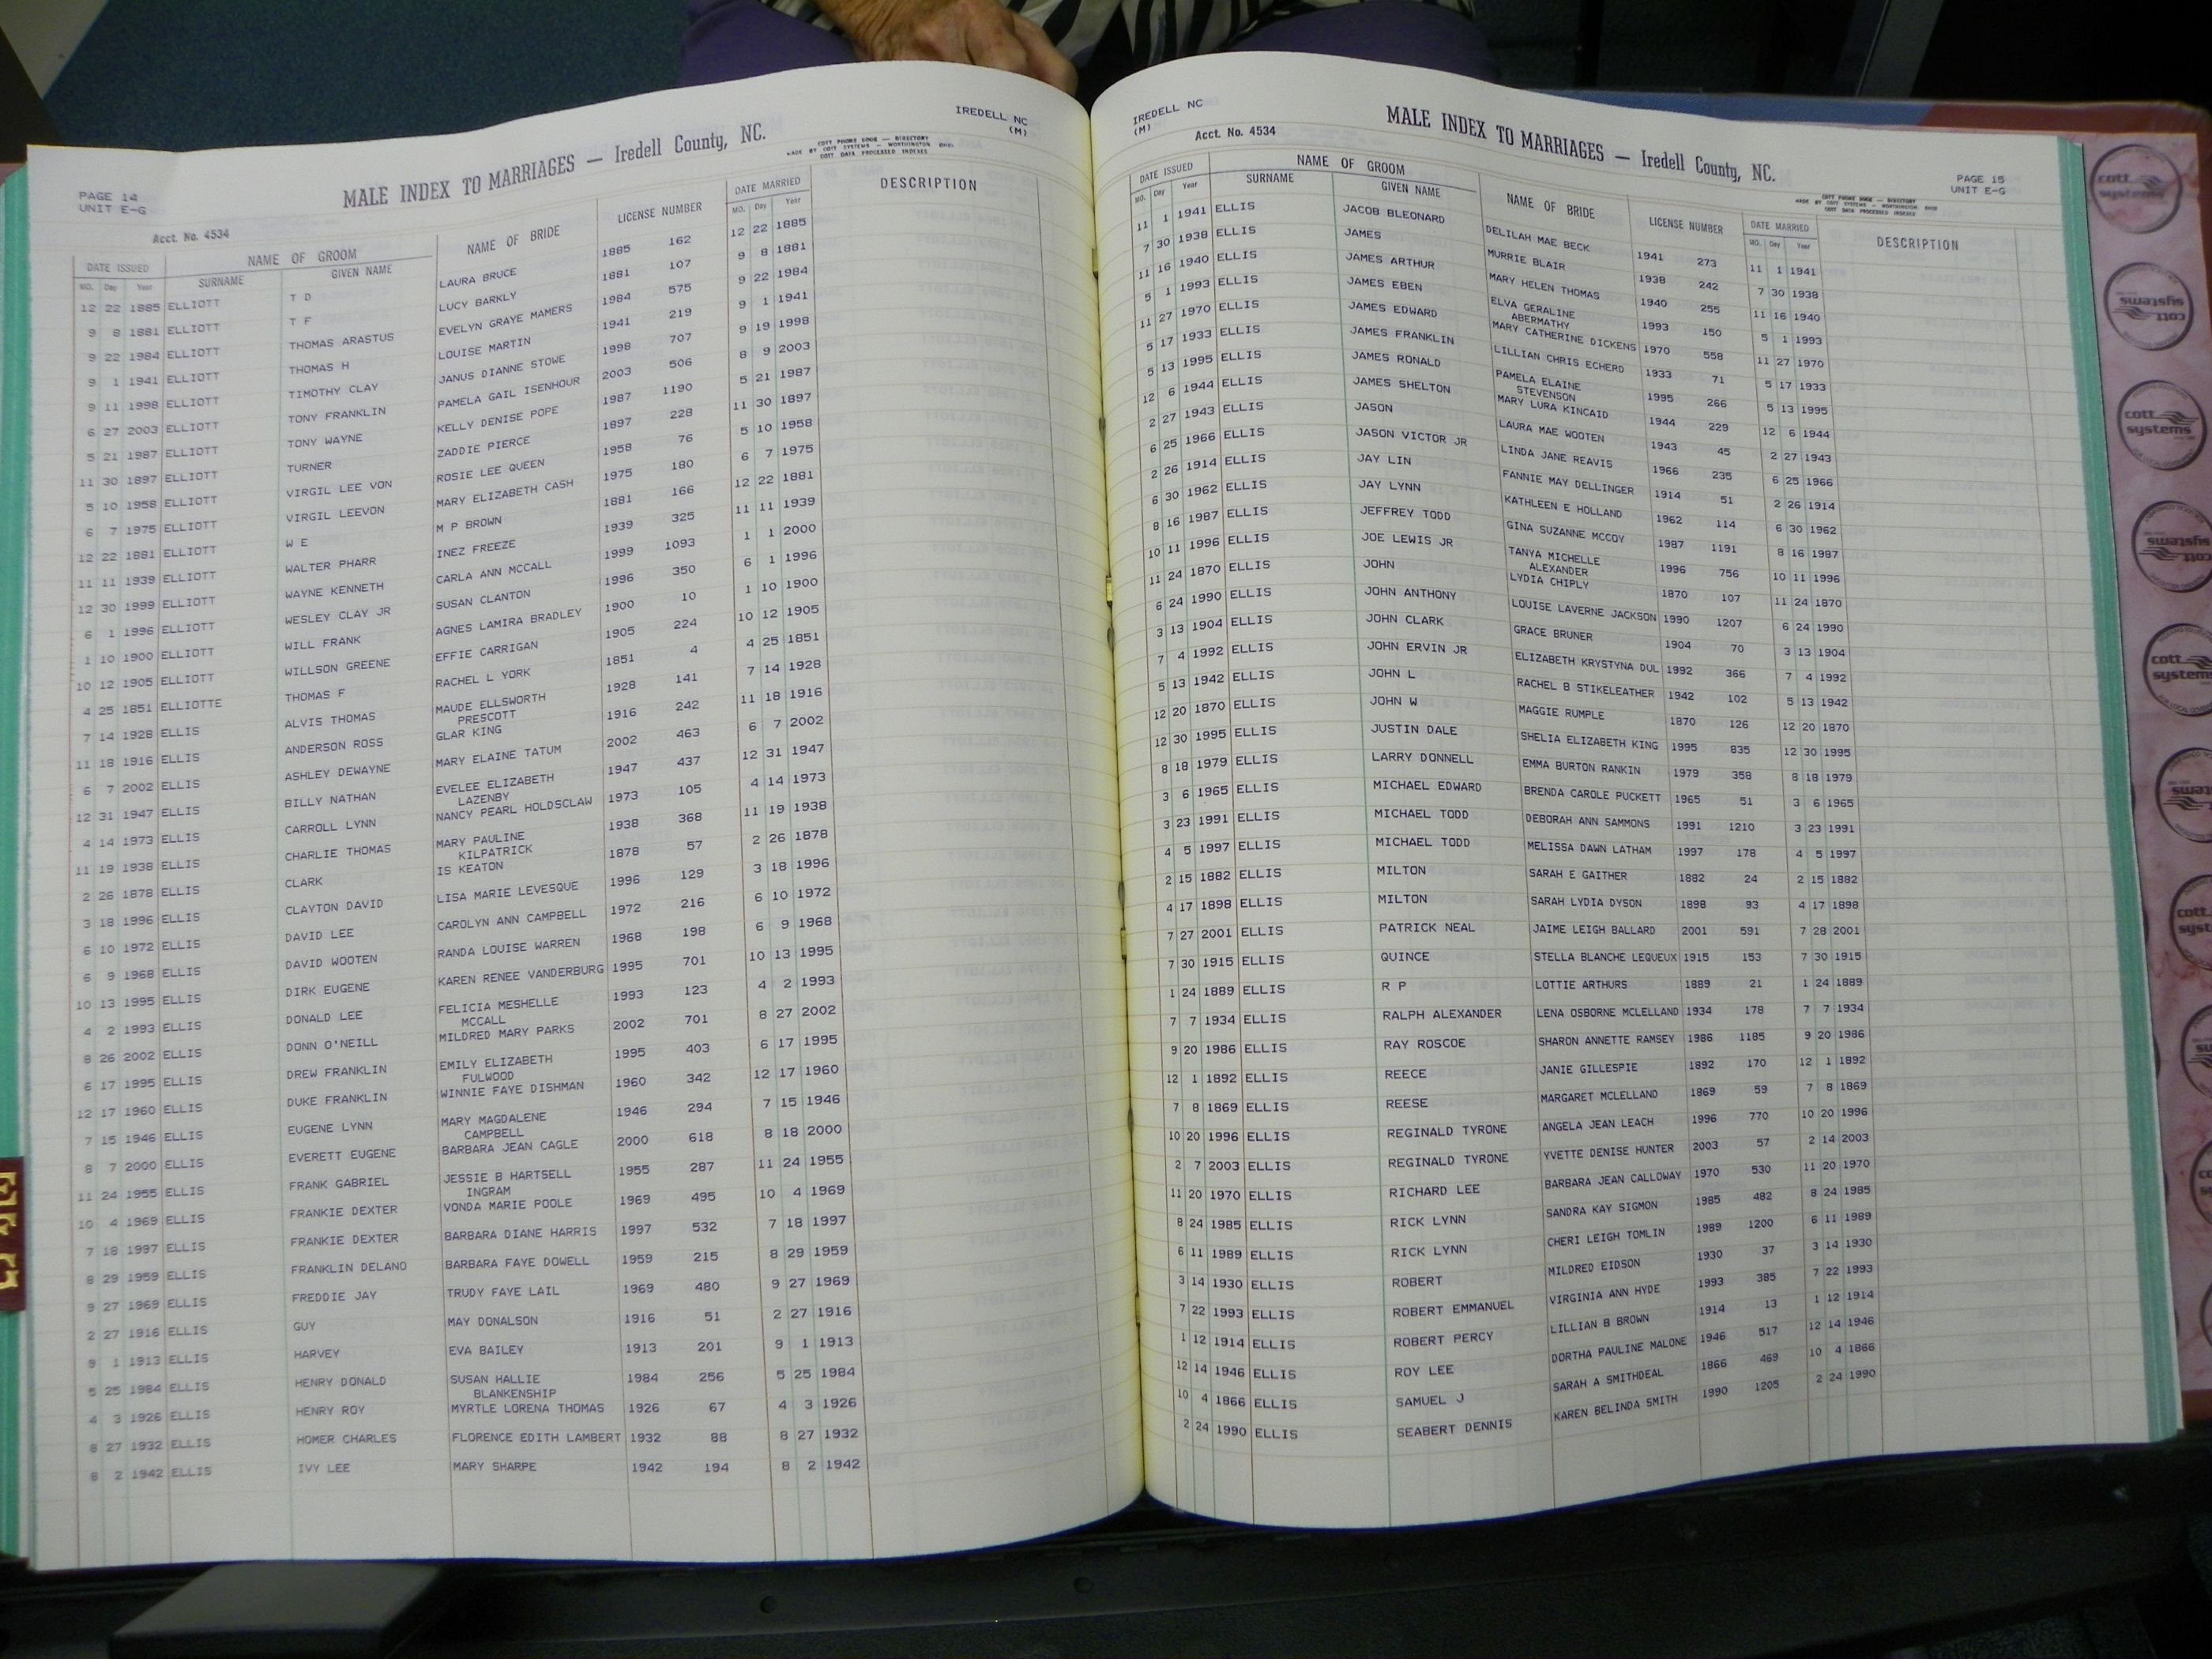 IREDELL NC
(M)
MALE INDEX TO MARRIAGES — Iredell County, NC.
COTT PHONE BOOK — DIRECTORY
MADE BY COTT SYSTEMS — WORTHINGTON OHIO
COTT DATA PROCESSED INDEXES
PAGE 14
UNIT E-G
Acct. No. 4534
DATE ISSUED NAME OF GROOM NAME OF BRIDE LICENSE NUMBER DATE MARRIED DESCRIPTION
MO. Day Year SURNAME GIVEN NAME MO. Day Year
12 22 1885 ELLIOTT T D LAURA BRUCE 1885 162 12 22 1885
9 8 1881 ELLIOTT T F LUCY BARKLY 1881 107 9 8 1881
9 22 1984 ELLIOTT THOMAS ARASTUS EVELYN GRAYE MAMERS 1984 575 9 22 1984
9 1 1941 ELLIOTT THOMAS H LOUISE MARTIN 1941 219 9 1 1941
9 11 1998 ELLIOTT TIMOTHY CLAY JANUS DIANNE STOWE 1998 707 9 19 1998
6 27 2003 ELLIOTT TONY FRANKLIN PAMELA GAIL ISENHOUR 2003 506 8 9 2003
5 21 1987 ELLIOTT TONY WAYNE KELLY DENISE POPE 1987 1190 5 21 1987
11 30 1897 ELLIOTT TURNER ZADDIE PIERCE 1897 228 11 30 1897
5 10 1958 ELLIOTT VIRGIL LEE VON ROSIE LEE QUEEN 1958 76 5 10 1958
6 7 1975 ELLIOTT VIRGIL LEEVON MARY ELIZABETH CASH 1975 180 6 7 1975
12 22 1881 ELLIOTT W E M P BROWN 1881 166 12 22 1881
11 11 1939 ELLIOTT WALTER PHARR INEZ FREEZE 1939 325 11 11 1939
12 30 1999 ELLIOTT WAYNE KENNETH CARLA ANN MCCALL 1999 1093 1 1 2000
6 1 1996 ELLIOTT WESLEY CLAY JR SUSAN CLANTON 1996 350 6 1 1996
1 10 1900 ELLIOTT WILL FRANK AGNES LAMIRA BRADLEY 1900 10 1 10 1900
10 12 1905 ELLIOTT WILLSON GREENE EFFIE CARRIGAN 1905 224 10 12 1905
4 25 1851 ELLIOTTE THOMAS F RACHEL L YORK 1851 4 4 25 1851
7 14 1928 ELLIS ALVIS THOMAS MAUDE ELLSWORTH 1928 141 7 14 1928
PRESCOTT
11 18 1916 ELLIS ANDERSON ROSS GLAR KING 1916 242 11 18 1916
6 7 2002 ELLIS ASHLEY DEWAYNE MARY ELAINE TATUM 2002 463 6 7 2002
12 31 1947 ELLIS BILLY NATHAN EVELEE ELIZABETH 1947 437 12 31 1947
LAZENBY
4 14 1973 ELLIS CARROLL LYNN NANCY PEARL HOLDSCLAW 1973 105 4 14 1973
11 19 1938 ELLIS CHARLIE THOMAS MARY PAULINE 1938 368 11 19 1938
KILPATRICK
2 26 1878 ELLIS CLARK IS KEATON 1878 57 2 26 1878
3 18 1996 ELLIS CLAYTON DAVID LISA MARIE LEVESQUE 1996 129 3 18 1996
6 10 1972 ELLIS DAVID LEE CAROLYN ANN CAMPBELL 1972 216 6 10 1972
6 9 1968 ELLIS DAVID WOOTEN RANDA LOUISE WARREN 1968 198 6 9 1968
10 13 1995 ELLIS DIRK EUGENE KAREN RENEE VANDERBURG 1995 701 10 13 1995
4 2 1993 ELLIS DONALD LEE FELICIA MESHELLE 1993 123 4 2 1993
MCCALL
8 26 2002 ELLIS DONN O'NEILL MILDRED MARY PARKS 2002 701 8 27 2002
6 17 1995 ELLIS DREW FRANKLIN EMILY ELIZABETH 1995 403 6 17 1995
FULWOOD
12 17 1960 ELLIS DUKE FRANKLIN WINNIE FAYE DISHMAN 1960 342 12 17 1960
7 15 1946 ELLIS EUGENE LYNN MARY MAGDALENE 1946 294 7 15 1946
CAMPBELL
8 7 2000 ELLIS EVERETT EUGENE BARBARA JEAN CAGLE 2000 618 8 18 2000
11 24 1955 ELLIS FRANK GABRIEL JESSIE B HARTSELL 1955 287 11 24 1955
INGRAM
10 4 1969 ELLIS FRANKIE DEXTER VONDA MARIE POOLE 1969 495 10 4 1969
7 18 1997 ELLIS FRANKIE DEXTER BARBARA DIANE HARRIS 1997 532 7 18 1997
8 29 1959 ELLIS FRANKLIN DELANO BARBARA FAYE DOWELL 1959 215 8 29 1959
9 27 1969 ELLIS FREDDIE JAY TRUDY FAYE LAIL 1969 480 9 27 1969
2 27 1916 ELLIS GUY MAY DONALSON 1916 51 2 27 1916
9 1 1913 ELLIS HARVEY EVA BAILEY 1913 201 9 1 1913
5 25 1984 ELLIS HENRY DONALD SUSAN HALLIE 1984 256 5 25 1984
BLANKENSHIP
4 3 1926 ELLIS HENRY ROY MYRTLE LORENA THOMAS 1926 67 4 3 1926
8 27 1932 ELLIS HOMER CHARLES FLORENCE EDITH LAMBERT 1932 88 8 27 1932
8 2 1942 ELLIS IVY LEE MARY SHARPE 1942 194 8 2 1942
IREDELL NC
(M)
Acct. No. 4534
MALE INDEX TO MARRIAGES — Iredell County, NC.
COTT PHONE BOOK — DIRECTORY
MADE BY COTT SYSTEMS — WORTHINGTON OHIO
COTT DATA PROCESSED INDEXES
PAGE 15
UNIT E-G
DATE ISSUED NAME OF GROOM NAME OF BRIDE LICENSE NUMBER DATE MARRIED DESCRIPTION
MO. Day Year SURNAME GIVEN NAME MO. Day Year
11 1 1941 ELLIS JACOB BLEONARD DELILAH MAE BECK 1941 273 11 1 1941
7 30 1938 ELLIS JAMES MURRIE BLAIR 1938 242 7 30 1938
11 16 1940 ELLIS JAMES ARTHUR MARY HELEN THOMAS 1940 255 11 16 1940
5 1 1993 ELLIS JAMES EBEN ELVA GERALINE 1993 150 5 1 1993
ABERMATHY
11 27 1970 ELLIS JAMES EDWARD MARY CATHERINE DICKENS 1970 558 11 27 1970
5 17 1933 ELLIS JAMES FRANKLIN LILLIAN CHRIS ECHERD 1933 71 5 17 1933
5 13 1995 ELLIS JAMES RONALD PAMELA ELAINE 1995 266 5 13 1995
STEVENSON
12 6 1944 ELLIS JAMES SHELTON MARY LURA KINCAID 1944 229 12 6 1944
2 27 1943 ELLIS JASON LAURA MAE WOOTEN 1943 45 2 27 1943
6 25 1966 ELLIS JASON VICTOR JR LINDA JANE REAVIS 1966 235 6 25 1966
2 26 1914 ELLIS JAY LIN FANNIE MAY DELLINGER 1914 51 2 26 1914
6 30 1962 ELLIS JAY LYNN KATHLEEN E HOLLAND 1962 114 6 30 1962
8 16 1987 ELLIS JEFFREY TODD GINA SUZANNE MCCOY 1987 1191 8 16 1987
10 11 1996 ELLIS JOE LEWIS JR TANYA MICHELLE 1996 756 10 11 1996
ALEXANDER
11 24 1870 ELLIS JOHN LYDIA CHIPLY 1870 107 11 24 1870
6 24 1990 ELLIS JOHN ANTHONY LOUISE LAVERNE JACKSON 1990 1207 6 24 1990
3 13 1904 ELLIS JOHN CLARK GRACE BRUNER 1904 70 3 13 1904
7 4 1992 ELLIS JOHN ERVIN JR ELIZABETH KRYSTYNA DUL 1992 366 7 4 1992
5 13 1942 ELLIS JOHN L RACHEL B STIKELEATHER 1942 102 5 13 1942
12 20 1870 ELLIS JOHN W MAGGIE RUMPLE 1870 126 12 20 1870
12 30 1995 ELLIS JUSTIN DALE SHELIA ELIZABETH KING 1995 835 12 30 1995
8 18 1979 ELLIS LARRY DONNELL EMMA BURTON RANKIN 1979 358 8 18 1979
3 6 1965 ELLIS MICHAEL EDWARD BRENDA CAROLE PUCKETT 1965 51 3 6 1965
3 23 1991 ELLIS MICHAEL TODD DEBORAH ANN SAMMONS 1991 1210 3 23 1991
4 5 1997 ELLIS MICHAEL TODD MELISSA DAWN LATHAM 1997 178 4 5 1997
2 15 1882 ELLIS MILTON SARAH E GAITHER 1882 24 2 15 1882
4 17 1898 ELLIS MILTON SARAH LYDIA DYSON 1898 93 4 17 1898
7 27 2001 ELLIS PATRICK NEAL JAIME LEIGH BALLARD 2001 591 7 28 2001
7 30 1915 ELLIS QUINCE STELLA BLANCHE LEQUEUX 1915 153 7 30 1915
1 24 1889 ELLIS R P LOTTIE ARTHURS 1889 21 1 24 1889
7 7 1934 ELLIS RALPH ALEXANDER LENA OSBORNE MCLELLAND 1934 178 7 7 1934
9 20 1986 ELLIS RAY ROSCOE SHARON ANNETTE RAMSEY 1986 1185 9 20 1986
12 1 1892 ELLIS REECE JANIE GILLESPIE 1892 170 12 1 1892
7 8 1869 ELLIS REESE MARGARET MCLELLAND 1869 59 7 8 1869
10 20 1996 ELLIS REGINALD TYRONE ANGELA JEAN LEACH 1996 770 10 20 1996
2 7 2003 ELLIS REGINALD TYRONE YVETTE DENISE HUNTER 2003 57 2 14 2003
11 20 1970 ELLIS RICHARD LEE BARBARA JEAN CALLOWAY 1970 530 11 20 1970
8 24 1985 ELLIS RICK LYNN SANDRA KAY SIGMON 1985 482 8 24 1985
6 11 1989 ELLIS RICK LYNN CHERI LEIGH TOMLIN 1989 1200 6 11 1989
3 14 1930 ELLIS ROBERT MILDRED EIDSON 1930 37 3 14 1930
7 22 1993 ELLIS ROBERT EMMANUEL VIRGINIA ANN HYDE 1993 385 7 22 1993
1 12 1914 ELLIS ROBERT PERCY LILLIAN B BROWN 1914 13 1 12 1914
12 14 1946 ELLIS ROY LEE DORTHA PAULINE MALONE 1946 517 12 14 1946
10 4 1866 ELLIS SAMUEL J SARAH A SMITHDEAL 1866 469 10 4 1866
2 24 1990 ELLIS SEABERT DENNIS KAREN BELINDA SMITH 1990 1205 2 24 1990
cott
systems
cott
systems
cott
systems
cott
systems